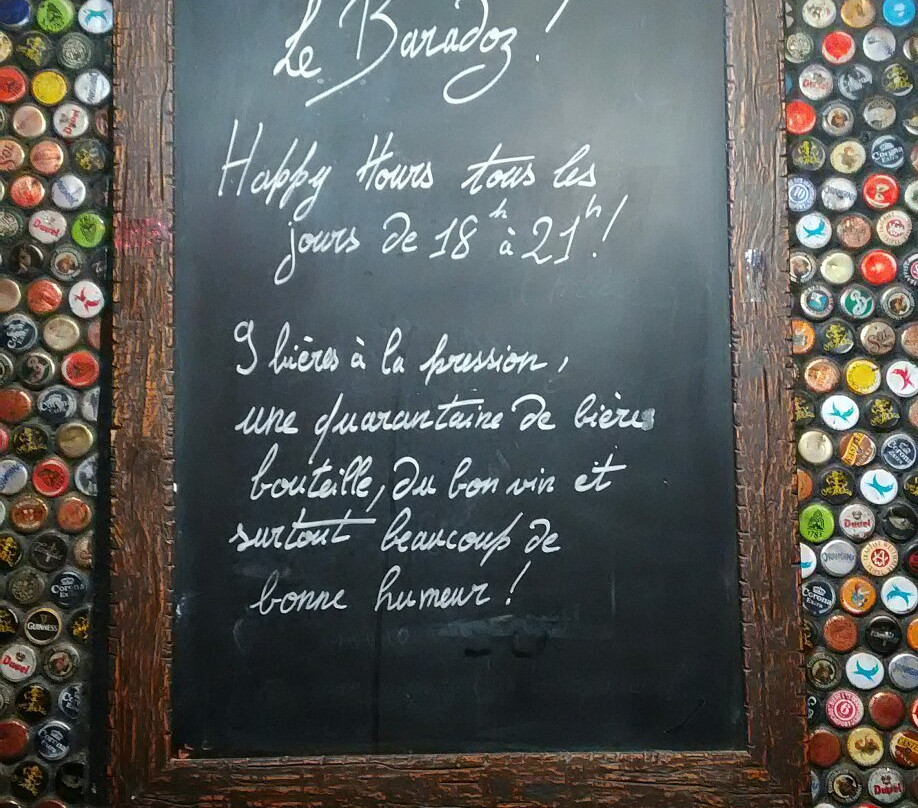 Le Baradoz !
Happy Hours tous les
jours de 18h à 21h !
9 bières à la pression,
une quarantaine de bières
bouteille, du bon vin et
surtout beaucoup de
bonne humeur !
Duvel
Corona
Extra
GUINNESS
Duvel
Duvel
Corona
Extra
Duvel
Corona
Extra
Duvel